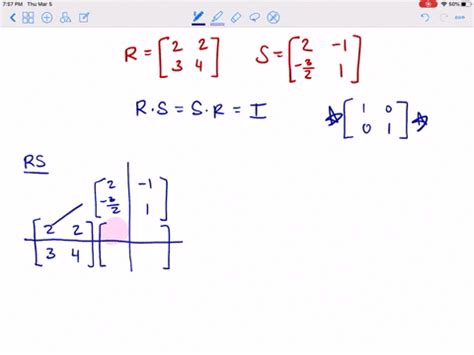 7:57 PM Thu Mar 5
50%
R = [2 2; 3 4] S = [2 -1; -3/2 1]
R·S = S·R = I ☆[1 0; 0 1]☆
RS
[2 -1; -3/2 1]
[2 2; 3 4] [ ]